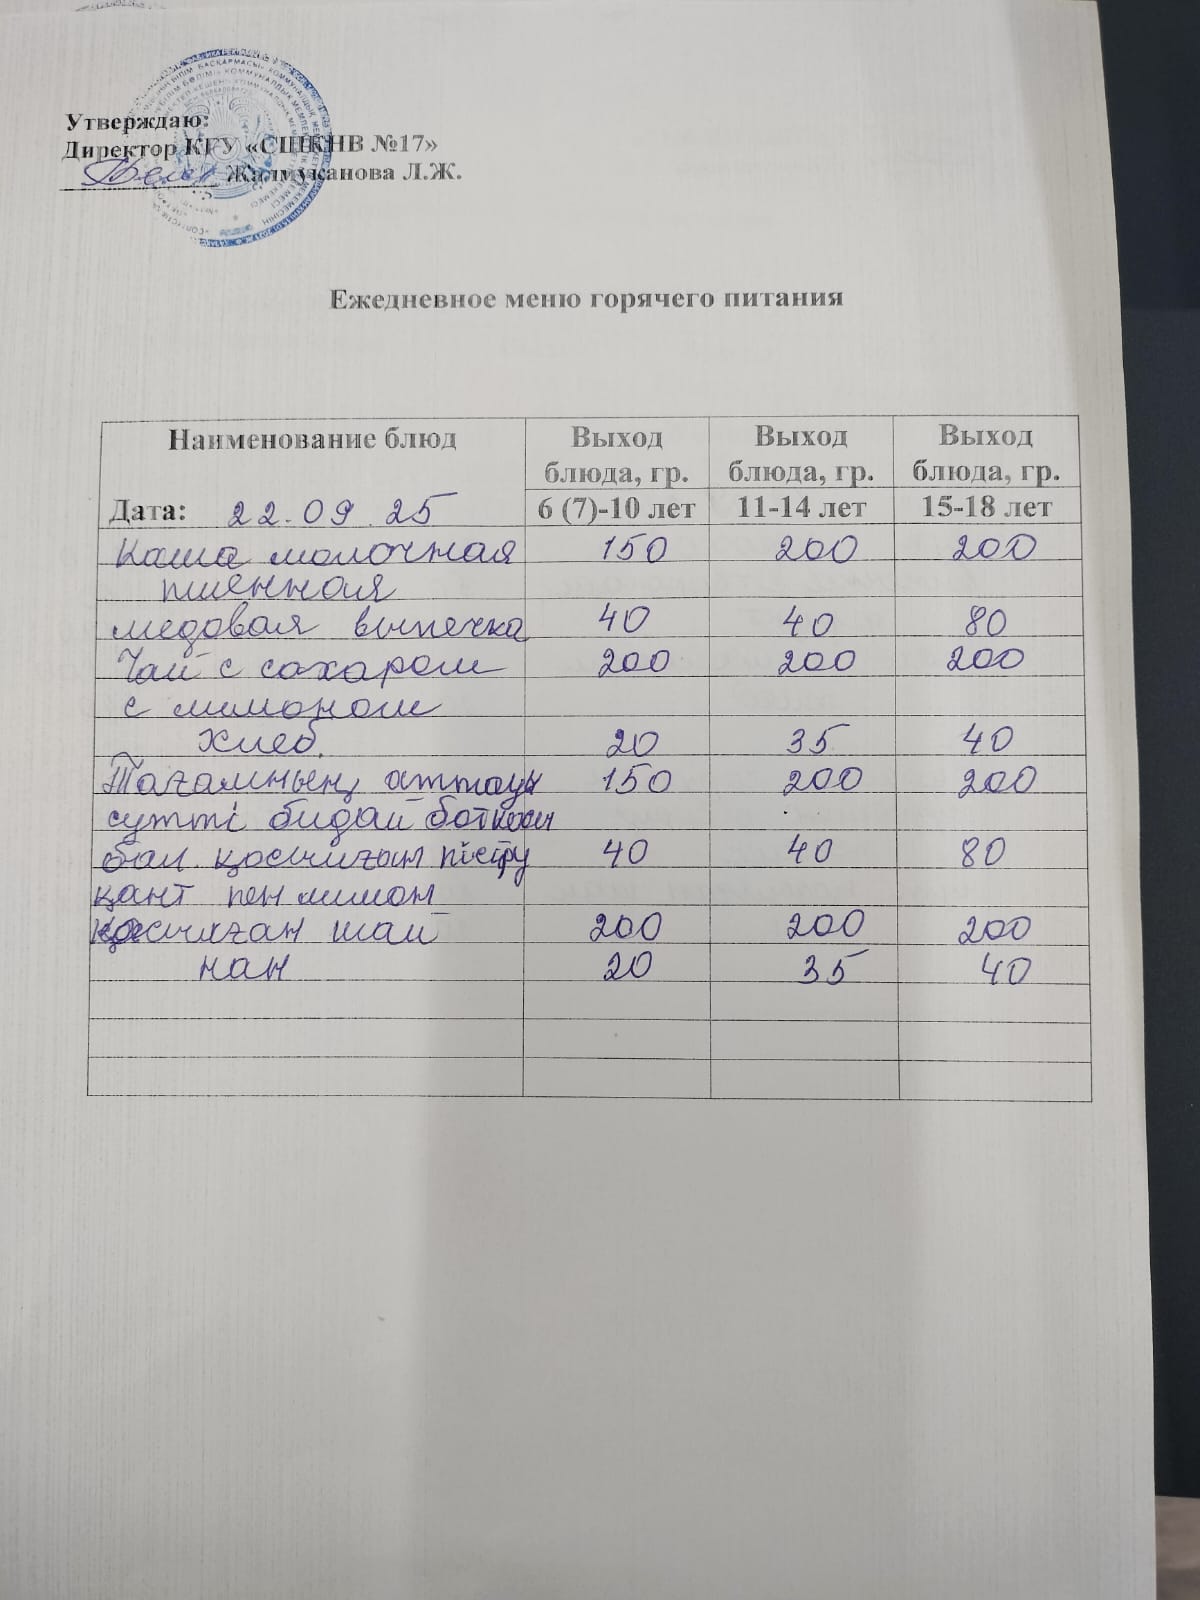 Утверждаю:
Директор КГУ «СШКНВ №17»
Жалмуканова Л.Ж.
Ежедневное меню горячего питания
Наименование блюд Выход блюда, гр. Выход блюда, гр. Выход блюда, гр.
Дата: 22.09.25 6 (7)-10 лет 11-14 лет 15-18 лет
Каша молочная 150 200 200
пшенная
медовая выпечка 40 40 80
Чай с сахаром 200 200 200
с лимоном
хлеб. 20 35 40
Тағамның аттауы 150 200 200
сутті бидай боткасы
бал қосылған пісіру 40 40 80
қант пен лимон
қосылған шай 200 200 200
нан 20 35 40